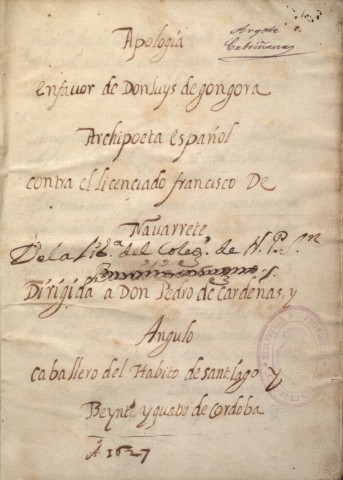 Argote e
Cabriñana
Apologia
en fauor de Don luys de gongora
Archipoeta español
contra el licenciado francisco De
Navarrete
De la Lib.ª del Coleg.º de N. P. S.n
Dirigida a Don Pedro de Cardenas, y
Angulo
caballero del Habito de santiago y
Beynt.e y quatro de cordoba
A. 1627